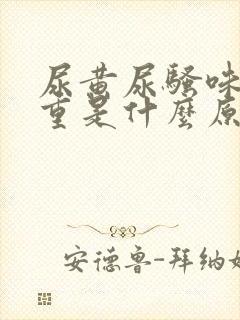 尿黄尿骚味
重是什麼原
安德鲁-拜纳姆